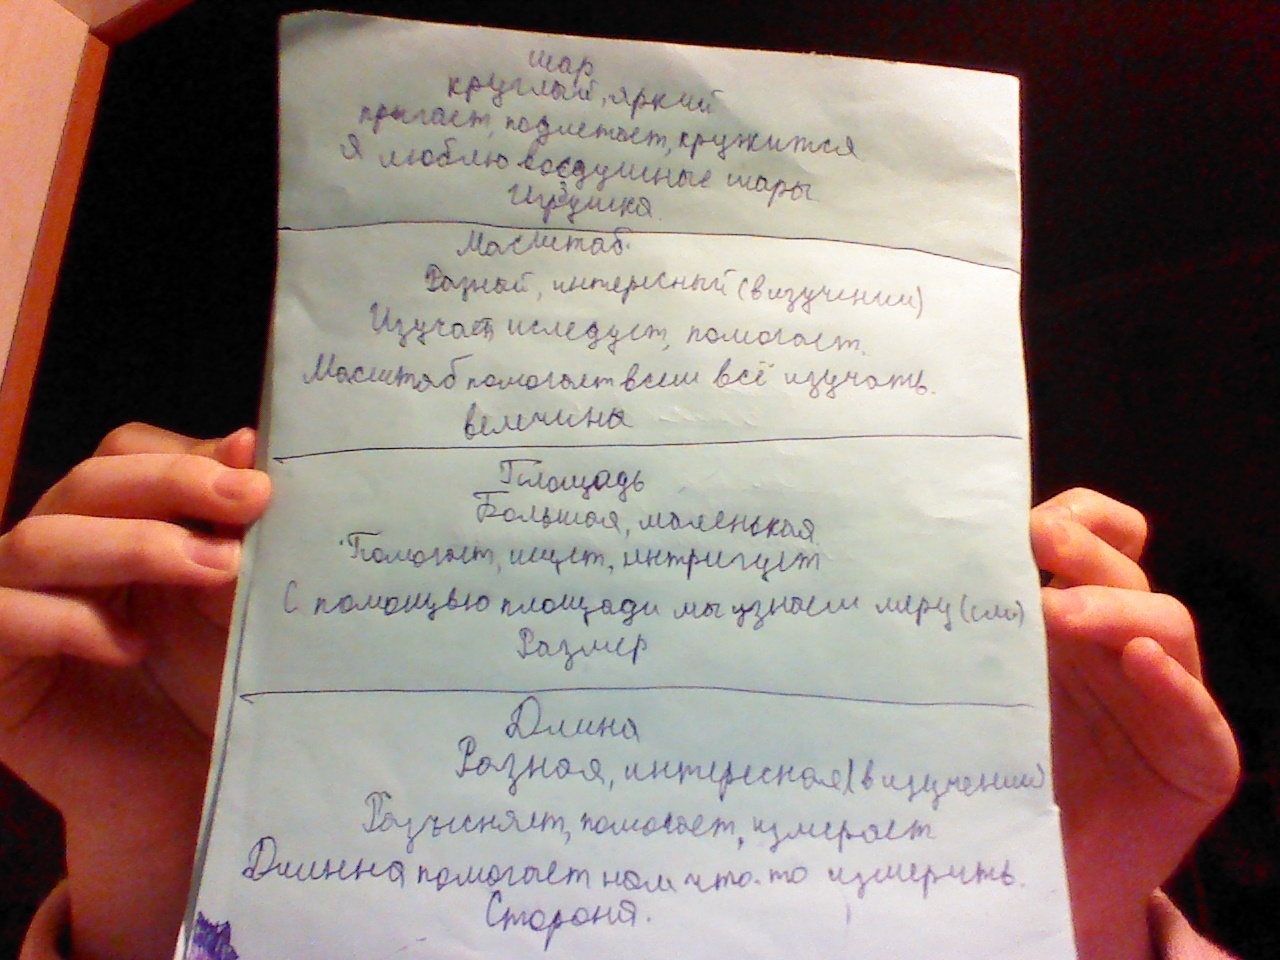 шар
круглый, яркий
прыгает, подлетает, кружится
Я люблю воздушные шары
Игрушка
Масштаб.
Разный, интересный (в изучении)
Изучает, иследует, помогает.
Масштаб помогает всем всё изучать.
величина
Площадь
Большая, маленькая
Помогает, ищет, интригует
С помощью площади мы узнаем меру (см²)
Размер
Длина
Разная, интересная (в изучении)
Разъясняет, помогает, измеряет
Длинна помогает нам что-то измерить.
Сторона.